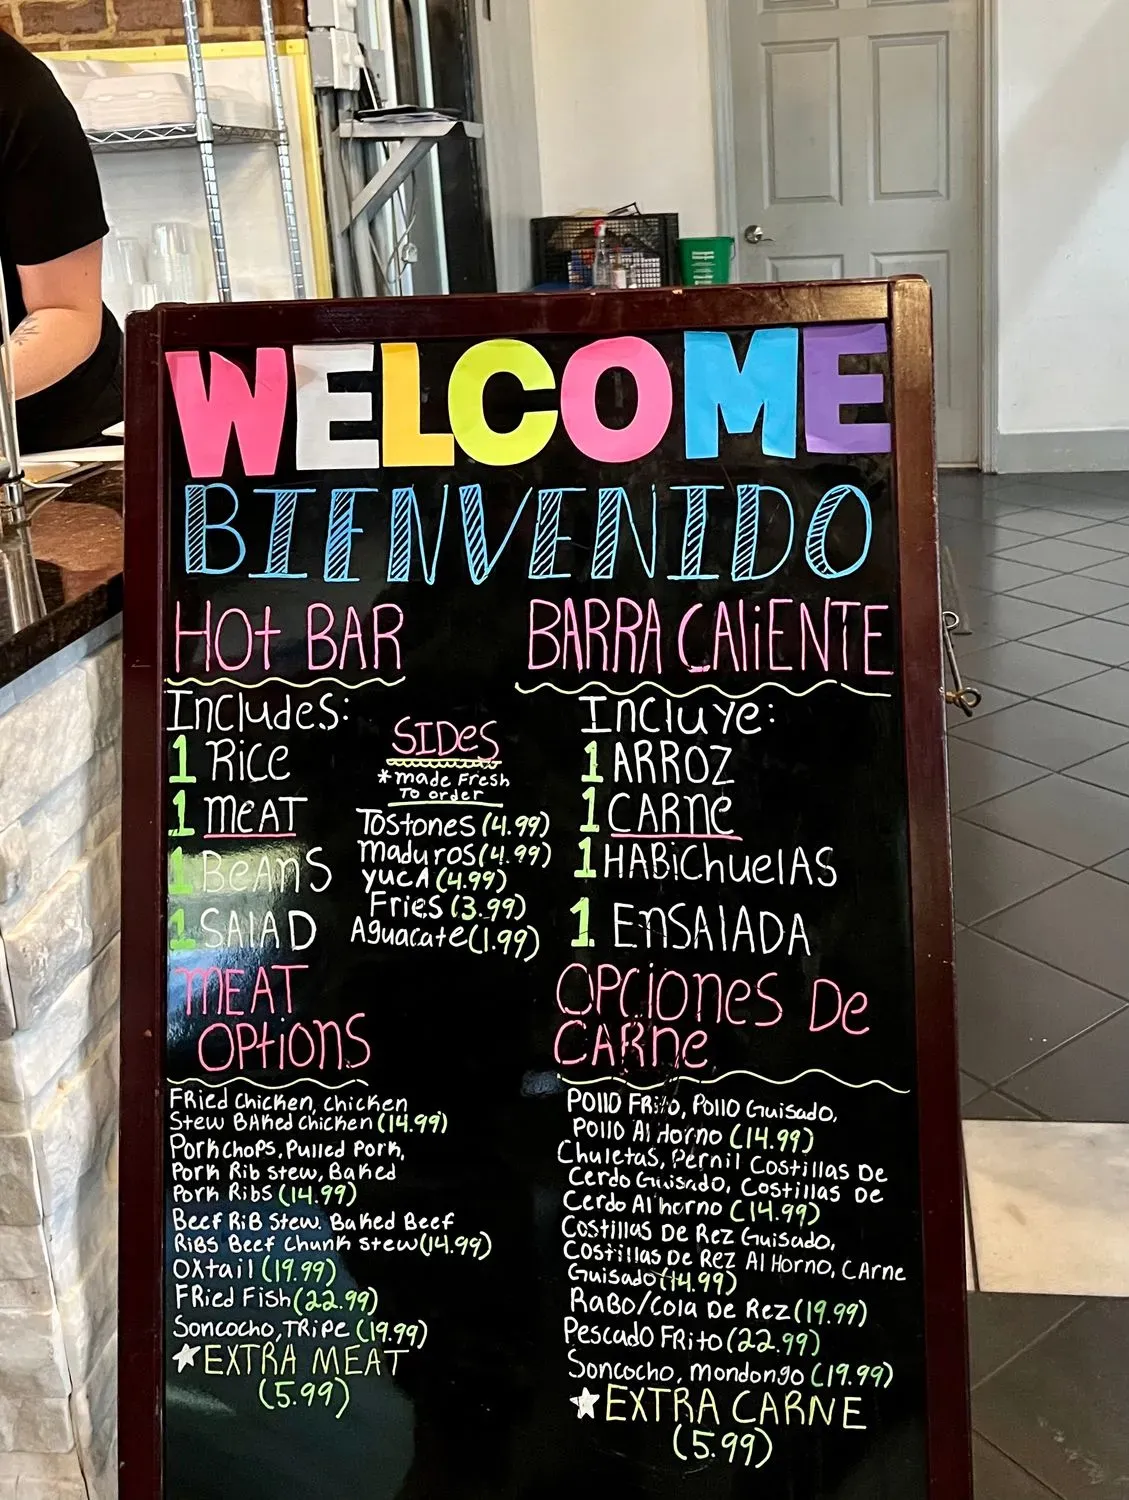 WELCOME
BIENVENIDO
HOt BAR
Includes:
1 RICE
1 MEAT
1 BEANS
1 SALAD
SIDES
*made Fresh
To order
Tostones (4.99)
Maduros (4.99)
YUCA (4.99)
Fries (3.99)
Aguacate (1.99)
MEAT
OPtiOnS
FRied Chicken, Chicken
Stew BAked Chicken (14.99)
PorkChoPs, Pulled Pork,
Pork Rib Stew, Baked
Pork Ribs (14.99)
Beef RiB Stew. Baked Beef
RiBs Beef Chunk Stew (14.99)
OXtail (19.99)
FRied Fish (22.99)
Soncocho, TRiPe (19.99)
★EXTRA MEAT
(5.99)
BARRA CALiENTE
Incluye:
1 ARROZ
1 CARNE
1 HABichuelAS
1 EnSALADA
OPCiones De
CARne
Pollo FRito, Pollo Guisado,
Pollo Al Horno (14.99)
Chuletas, Pernil Costillas De
Cerdo Guisado, Costillas De
Cerdo Al horno (14.99)
Costillas De Rez Guisado,
Costillas De Rez Al Horno, CArne
Guisado (14.99)
RaBo/Cola De Rez (19.99)
Pescado FRito (22.99)
Soncocho, Mondongo (19.99)
★EXTRA CARNE
(5.99)